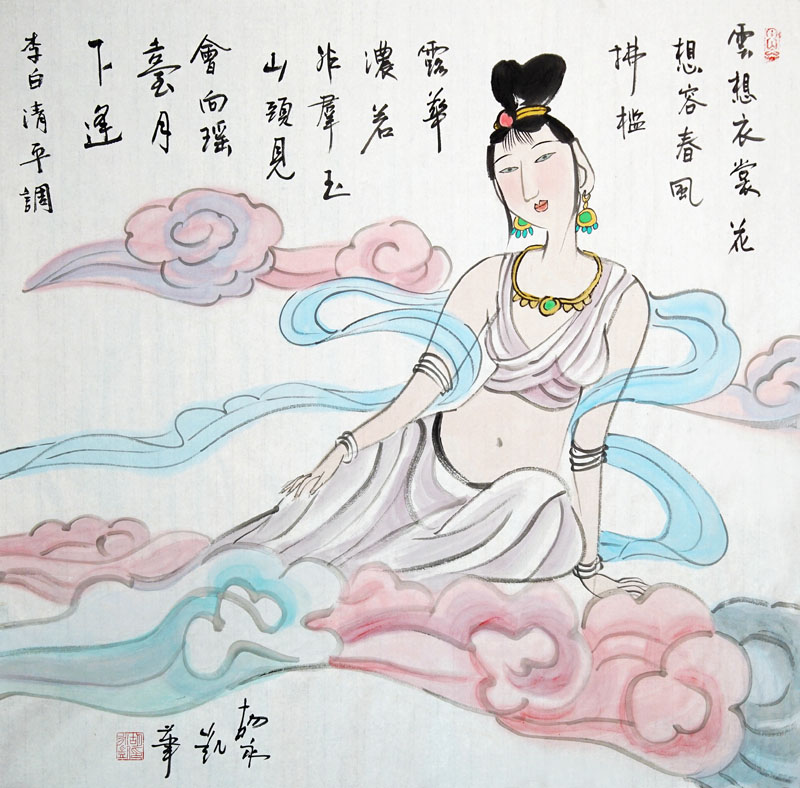 雲想衣裳花
想容春風
拂檻
露華
濃若
非羣玉
山頭見
會向瑶
臺月
下逢
李白清平調